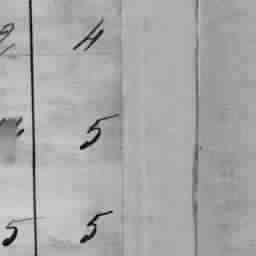 2 4
5
5 5